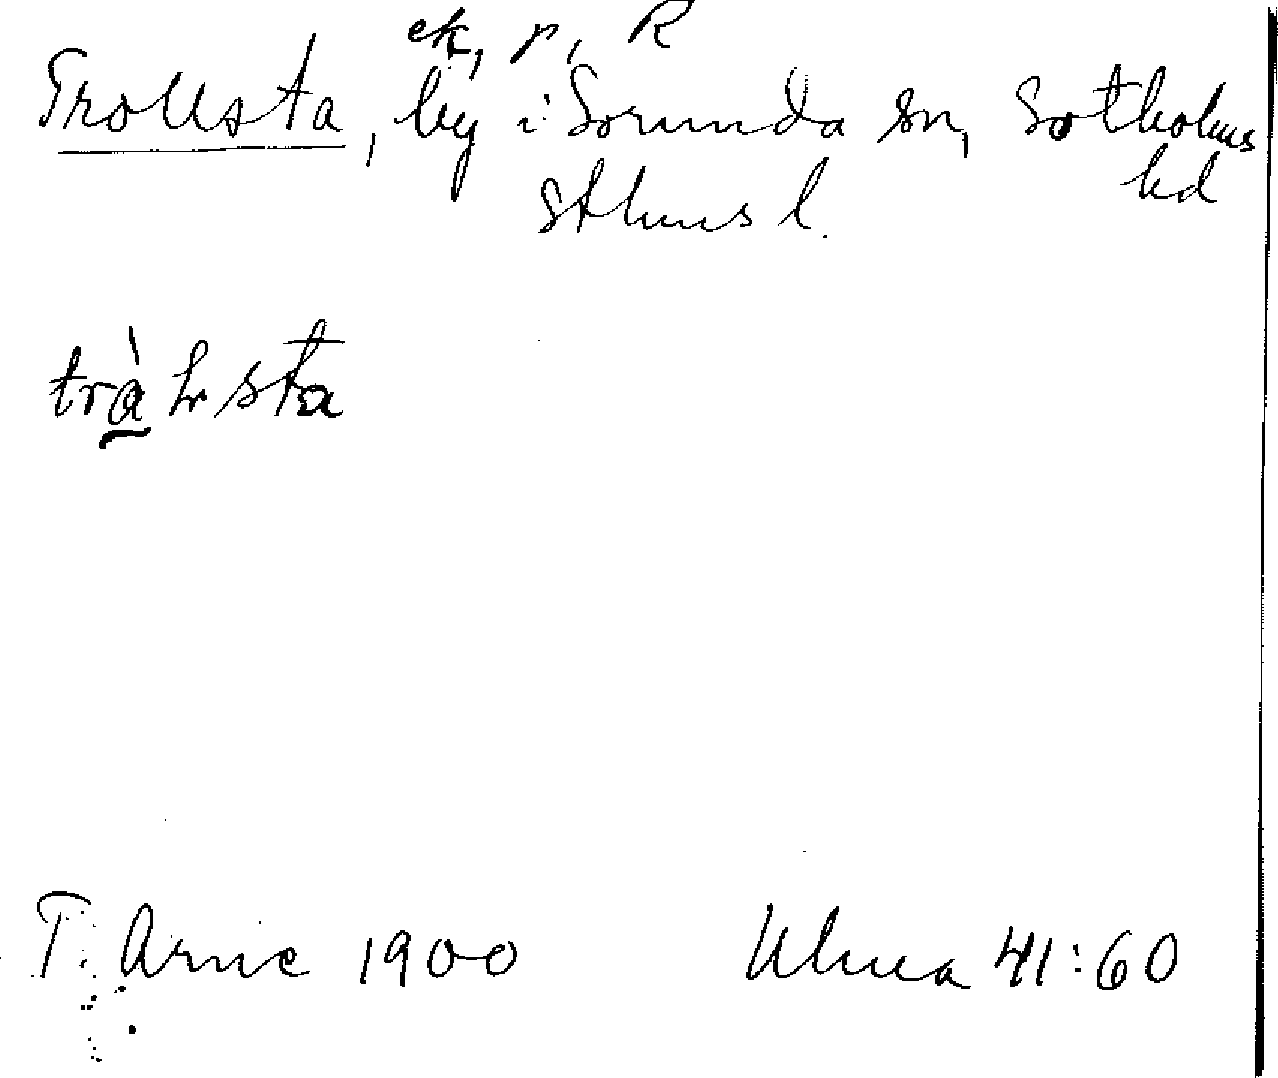 ek, r, R
Trollsta, by i Sorunda sn, Sotholms
hd
Sthms l.
T. Arne 1900 Ulma 41:60